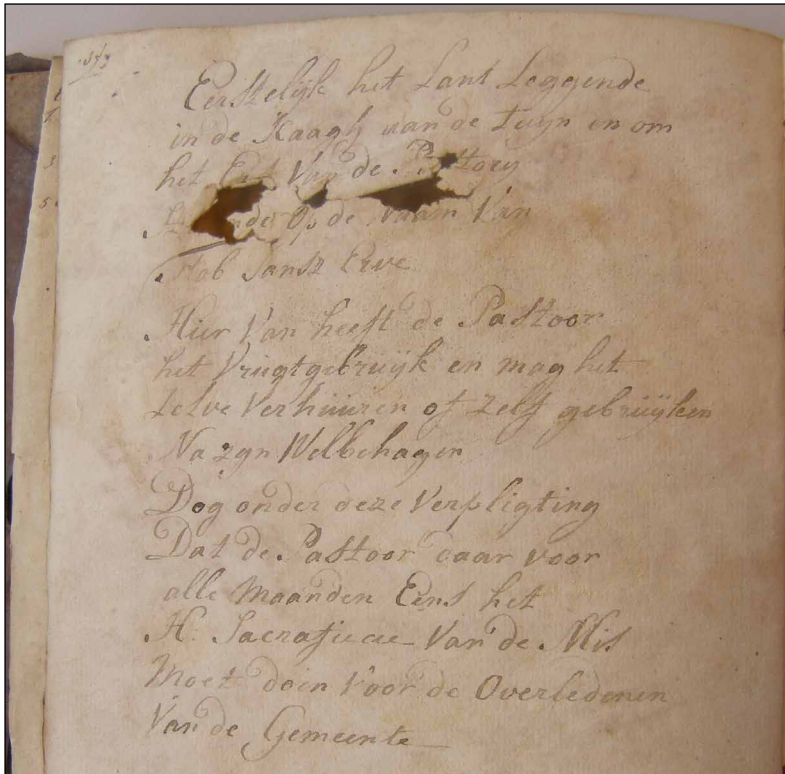 Eerstelijk het Lant Leggende
in de Kaagh van de Tuyn en om
het Erf Van de Pastorij
op de naam Van
Hob Jansz Erve
Hier Van heeft de Pastoor
het Vrugtgebruijk en mag het
Zelve Verhuuren of Zelf gebruijken
Na zyn Welbehagen
Dog onder deze Verpligting
Dat de Pastoor daar voor
alle Maanden Eens het
H. Sacrificie Van de Mis
Moet doen Voor de Overledenen
Van de Gemeente